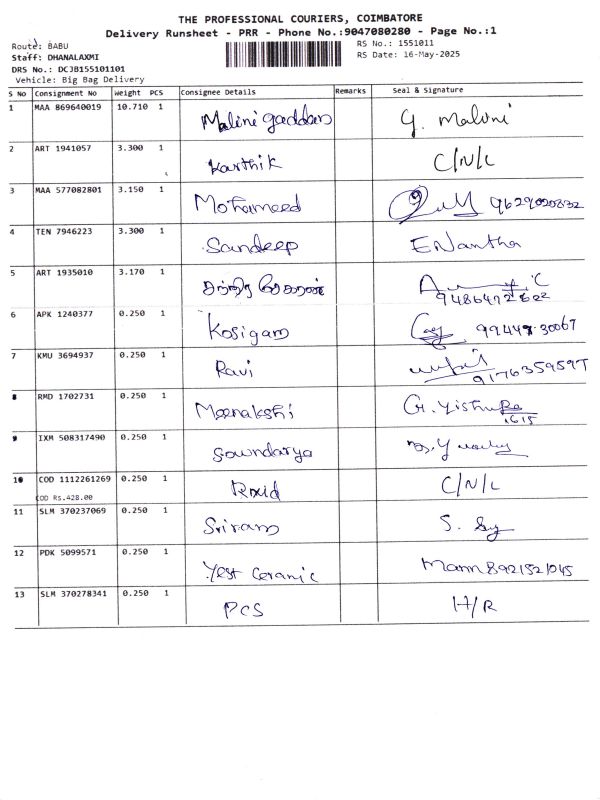 THE PROFESSIONAL COURIERS, COIMBATORE
Delivery Runsheet - PRR - Phone No.:9047080280 - Page No.:1
Route: BABU
RS No.: 1551011
Staff: DHANALAXMI
RS Date: 16-May-2025
DRS No.: DCJB155101101
Vehicle: Big Bag Delivery
S No Consignment No Weight PCS Consignee Details Remarks Seal & Signature
1 MAA 869640019 10.710 1 Malini gaddam G. Malini
2 ART 1941057 3.300 1 Karthik C/N/L
3 MAA 577082801 3.150 1 Mohameed
4 TEN 7946223 3.300 1 Sandeep
5 ART 1935010 3.170 1
6 APK 1240377 0.250 1 Kosigam
7 KMU 3694937 0.250 1 Ravi 9176359597
8 RMD 1702731 0.250 1 Meenakshi 1615
9 IXM 508317490 0.250 1 Soundarya
10 COD 1112261269 0.250 1 C/N/L
COD Rs.428.00
11 SLM 370237069 0.250 1 Sriram S.
12 PDK 5099571 0.250 1 Yest Ceramic
13 SLM 370278341 0.250 1 PCS H/R